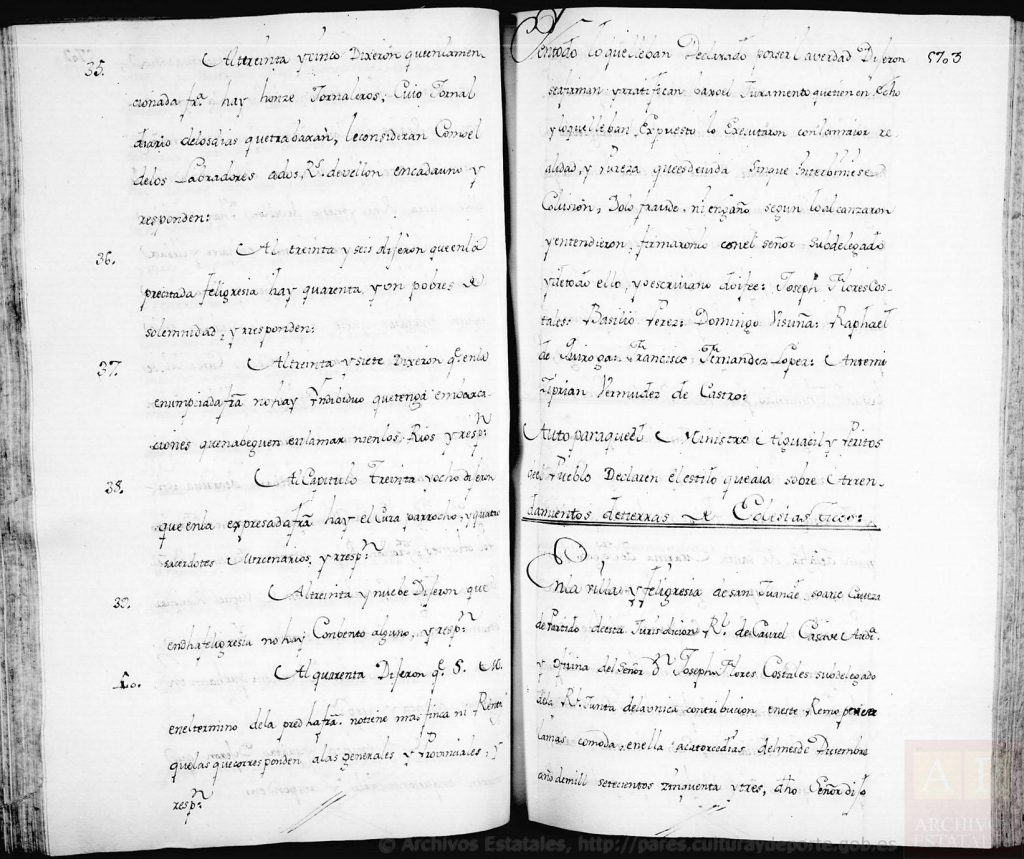 35. Al treinta y cinco Dixeron quenlamen
cionada fra. hay honze Jornaleros, Cuio Jornal
diario delosdias quetrabaxan, leconsideran Comoel
delos Labradores ados, Rs. devellon encadauno y
responden:
36. Al treinta y seis dijeron que enlá
precitada feligresia hay quarenta y un pobres de
solemnidad, y rresponden:
37. Al treinta y siete Dixeron q. enla
enunpciada fra. no hay Yndibiduo quetenga embarca
ciones quenabeguen enlamar nienlos Rios y resp.n
38. Al Capitulo treinta yocho dijeron
que enla expresada fra. hay el Cura parrocho, y quatro
sacerdotes Mercenarios, y rresp.n
39. Al treinta y nuebe Dijeron que
endha feligresia no hay Conbento alguno, y resp.n
40. Al quarenta Dijeron q. S. M.
eneltermino dela predha fra. notiene mas finca ni Renta
quelas quecorresponden alas generales y Provinciales, y
resp.n
5703
Yentodo loquelleban Declarado porser laverdad Dijeron
seafirman yrratifican vaxoel Juramento quetienen echo
yloquelleban Expuesto lo Executaron conlamaior re
alidad, y Pureza queesdevida sinque Interbiniese
Colusion, Dolo fraude, ni engaño segun loalcanzaron
yentendieron, firmaronlo conel señor subdelegado
ydetodo ello, yoescrivano doifee: Joseph Flores Cos-
tales: Basilio Perez: Domingo Visuña: Raphael
de Quiroga: Francisco Fernandez Lopez: Antemi
Ziprian Vermudez de Castro:
Auto paraqueel Ministro Alguacil y Peritos
del Pueblo Declaren el estilo queaia sobre Arren-
damientos detierras de Eclesiasticos:
Enla villa y feligresia de san Juande soare Caveza
de Partido deesta Jurisdicion Rl. de Caurel Casa de Audi.a
y oficina del Señor Dn. Joseph Flores Costales subdelegado
dela Rl. Junta delavnica contribucion eneste Reino
lamas comoda, enella acatorcedias delmesde Diziembre
año demill setecientos zinquenta ytres, dho Señor dijo
© Archivos Estatales, http://pares.culturaydeporte.gob.es
ARCHIVOS
ESTATALES